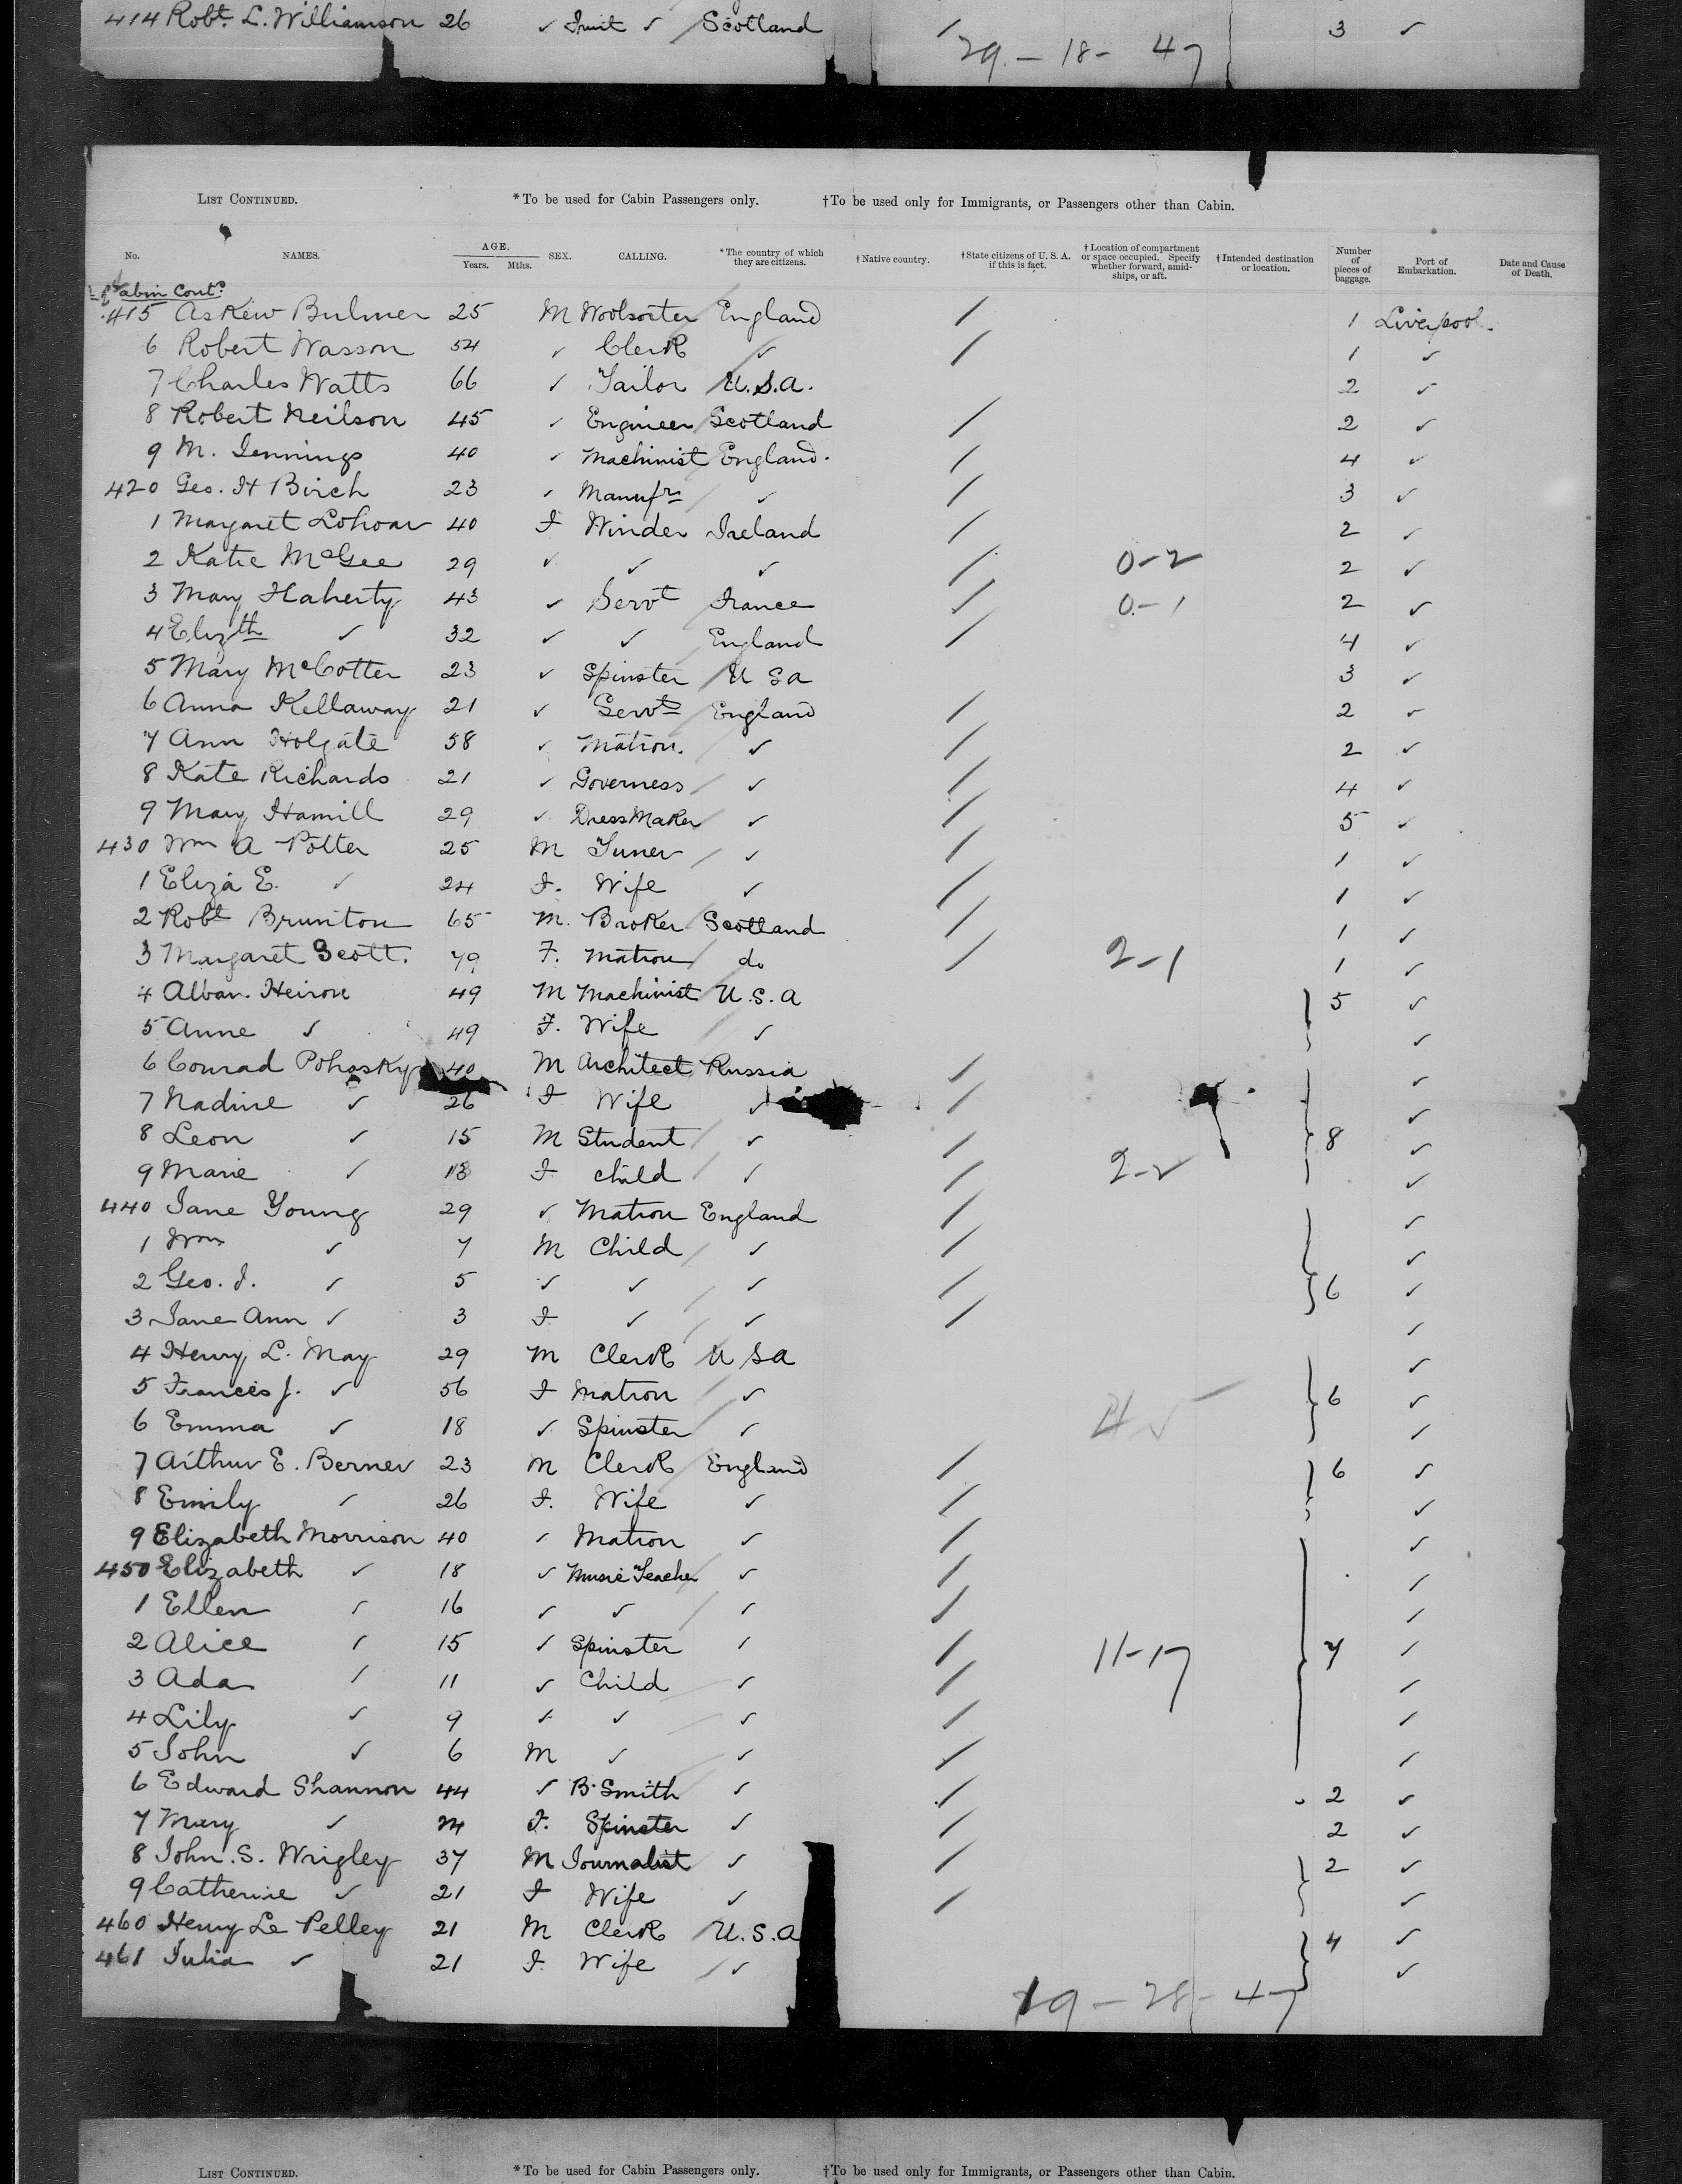 414 Robt. L. Williamson 26 ✓ ✓ / Scotland / 3 ✓
29 - 18 - 47
LIST CONTINUED. *To be used for Cabin Passengers only. †To be used only for Immigrants, or Passengers other than Cabin.
No. NAMES. AGE. Years. Mths. SEX. CALLING. *The country of which they are citizens. †Native country. †State citizens of U. S. A. if this is fact. †Location of compartment or space occupied. Specify whether forward, amidships, or aft. †Intended destination or location. Number of pieces of baggage. Port of Embarkation. Date and Cause of Death.
Cabin Contd
415 Askew Bulmer 25 M Woolsorter England / 1 Liverpool.
6 Robert Wasson 54 ✓ Clerk ✓ / 1 ✓
7 Charles Watts 66 ✓ Tailor U.S.A. 2 ✓
8 Robert Neilson 45 ✓ Engineer Scotland / 2 ✓
9 M. Jennings 40 ✓ Machinist England. / 4 ✓
420 Geo. H Birch 23 ✓ Manufr ✓ / 3 ✓
1 Margaret 40 F Winder Ireland / 2 ✓
2 Katie McGee 29 ✓ ✓ ✓ / 0-2 2 ✓
3 Mary Flaherty 43 ✓ Servt France / 0-1 2 ✓
4 Elizth ✓ 32 ✓ ✓ England / 4 ✓
5 Mary McCotter 23 ✓ Spinster U S a 3 ✓
6 Anna Kellaway 21 ✓ Servt England / 2 ✓
7 Ann Holgate 58 ✓ Matron. ✓ / 2 ✓
8 Kate Richards 21 ✓ Governess ✓ / 4 ✓
9 Mary Hamill 29 ✓ DressMaker ✓ / 5 ✓
430 Wm A Potter 25 M Tuner ✓ / 1 ✓
1 Eliza E. ✓ 24 F. Wife ✓ / 1 ✓
2 Robt Brunton 65 M. Broker Scotland / 1 ✓
3 Margaret Scott. 79 F. Matron do / 2-1 1 ✓
4 Alban. Heiron 49 M Machinist U.S.A 5 ✓
5 Anne ✓ 49 F. Wife ✓ ✓
6 Conrad Pohosky 40 M Architect Russia / ✓
7 Nadine ✓ 26 F Wife ✓ / ✓
8 Leon ✓ 15 M Student ✓ / 8 ✓
9 Marie ✓ 13 F child ✓ / 2-2 ✓
440 Jane Young 29 ✓ Matron England / ✓
1 Wm ✓ 7 M Child ✓ / ✓
2 Geo. J. ✓ 5 ✓ ✓ ✓ / 6 ✓
3 Jane Ann ✓ 3 F ✓ ✓ / ✓
4 Henry L. May 29 M Clerk U S A ✓
5 Frances J. ✓ 56 F Matron ✓ 6 ✓
6 Emma ✓ 18 ✓ Spinster ✓ ✓
7 Arthur E. Berner 23 M Clerk England / 6 ✓
8 Emily ✓ 26 F. Wife ✓ / ✓
9 Elizabeth Morrison 40 ✓ Matron ✓ / ✓
450 Elizabeth ✓ 18 ✓ Music Teacher ✓ / ✓
1 Ellen ✓ 16 ✓ ✓ ✓ / ✓
2 Alice ✓ 15 ✓ Spinster ✓ / 11-17 7 ✓
3 Ada ✓ 11 ✓ Child ✓ / ✓
4 Lily ✓ 9 ✓ ✓ ✓ / ✓
5 John ✓ 6 M ✓ ✓ / ✓
6 Edward Shannon 44 ✓ B. Smith ✓ / 2 ✓
7 Mary ✓ F. Spinster ✓ / 2 ✓
8 John. S. Wrigley 37 M Journalist ✓ / 2 ✓
9 Catherine ✓ 21 F Wife ✓ / ✓
460 Henry Le Pelley 21 M Clerk U.S.A 4 ✓
461 Julia ✓ 21 F. Wife ✓ ✓
19 - 28 - 47
LIST CONTINUED. *To be used for Cabin Passengers only. †To be used only for Immigrants, or Passengers other than Cabin.